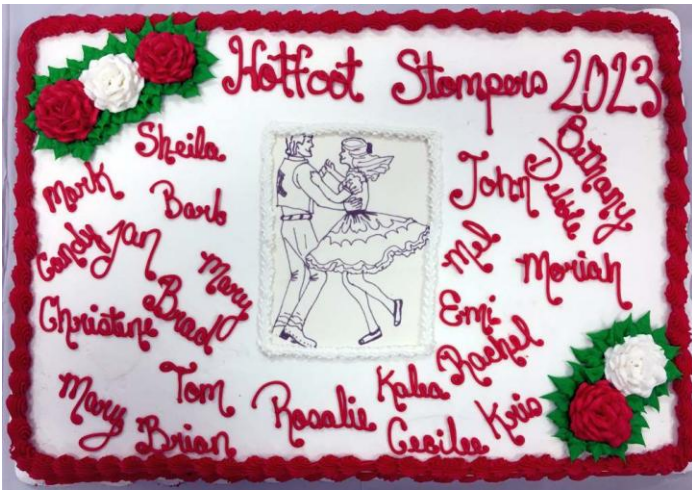 Hotfoot Stompers 2023
Sheila
Mark
Barb
Candy
Jan
Mary
Christine
Brad
Mary
Tom
Brian
Rosalie
John
Debbie
Bethany
Mel
Moriah
Emi
Rachel
Kalea
Kris
Cecilee